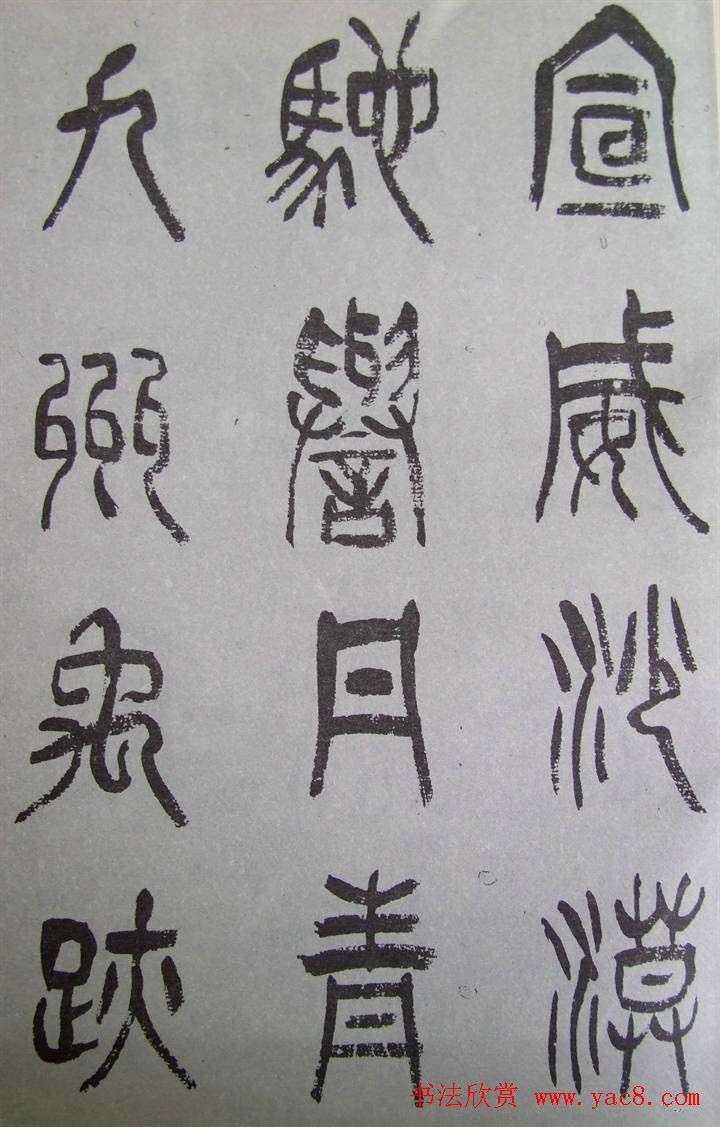 宣威沙漠
馳譽丹青
九州禹跡
书法欣赏 www.yac8.com